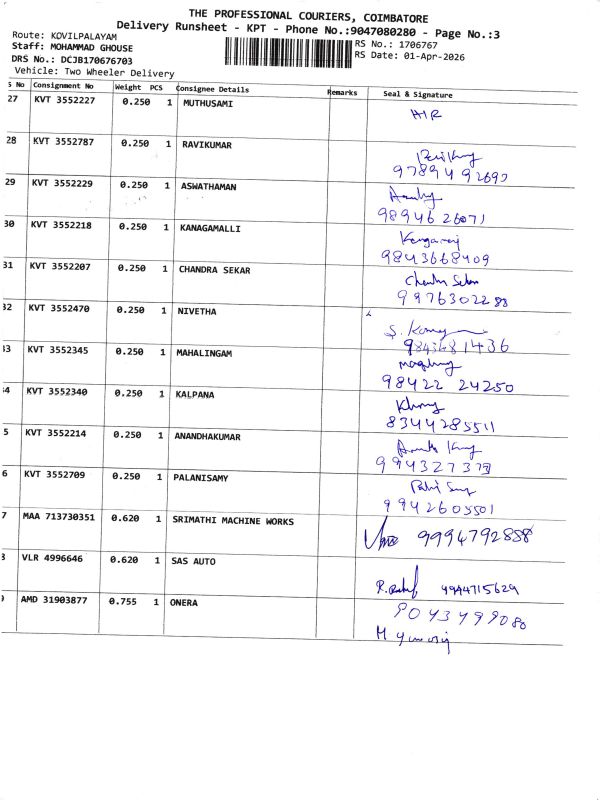 THE PROFESSIONAL COURIERS, COIMBATORE
Delivery Runsheet - KPT - Phone No.:9047080280 - Page No.:3
Route: KOVILPALAYAM
Staff: MOHAMMAD GHOUSE
RS No.: 1706767
DRS No.: DCJB170676703
RS Date: 01-Apr-2026
Vehicle: Two Wheeler Delivery
S No Consignment No Weight PCS Consignee Details Remarks Seal & Signature
27 KVT 3552227 0.250 1 MUTHUSAMI
28 KVT 3552787 0.250 1 RAVIKUMAR
29 KVT 3552229 0.250 1 ASWATHAMAN
9894626071
30 KVT 3552218 0.250 1 KANAGAMALLI
9843668409
31 KVT 3552207 0.250 1 CHANDRA SEKAR
9976302288
32 KVT 3552470 0.250 1 NIVETHA
33 KVT 3552345 0.250 1 MAHALINGAM
98422 24250
4 KVT 3552340 0.250 1 KALPANA
8344285511
5 KVT 3552214 0.250 1 ANANDHAKUMAR
6 KVT 3552709 0.250 1 PALANISAMY
9942605501
7 MAA 713730351 0.620 1 SRIMATHI MACHINE WORKS
9994792858
8 VLR 4996646 0.620 1 SAS AUTO
9 AMD 31903877 0.755 1 ONERA